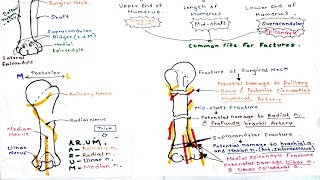 Surgical Neck.
Shaft
Supracondylar
Ridges (L&M)
Medial
Epicondyle
Lateral
Epicondyle
Upper End of
Humerus
Length of
Humerus
Lower End of
Humerus
Mid-shaft
Supracondylar
Epicondyle
Common Site For Fractures.
M
Posterior
L
Axillary Nerve
Radial Nerve
Median Nerve
Ulnar Nerve
Trick
A.R.U.M.
A- Axillary n.
R- Radial n.
U- Ulnar n.
M- Median n.
Fracture at Surgical Neck
Potential Damage to Axillary
Nerve & Posterior Circumflex
Humeral Artery
Mid-shaft Fracture
Potential Damage to Radial n
& Profunda brachii Artery
Supracondylar Fracture
Potential Damage to brachial a
and Median n
Medial Epicondyle Fracture
Potential Damage Ulnar n
& Ulnar collateral a.